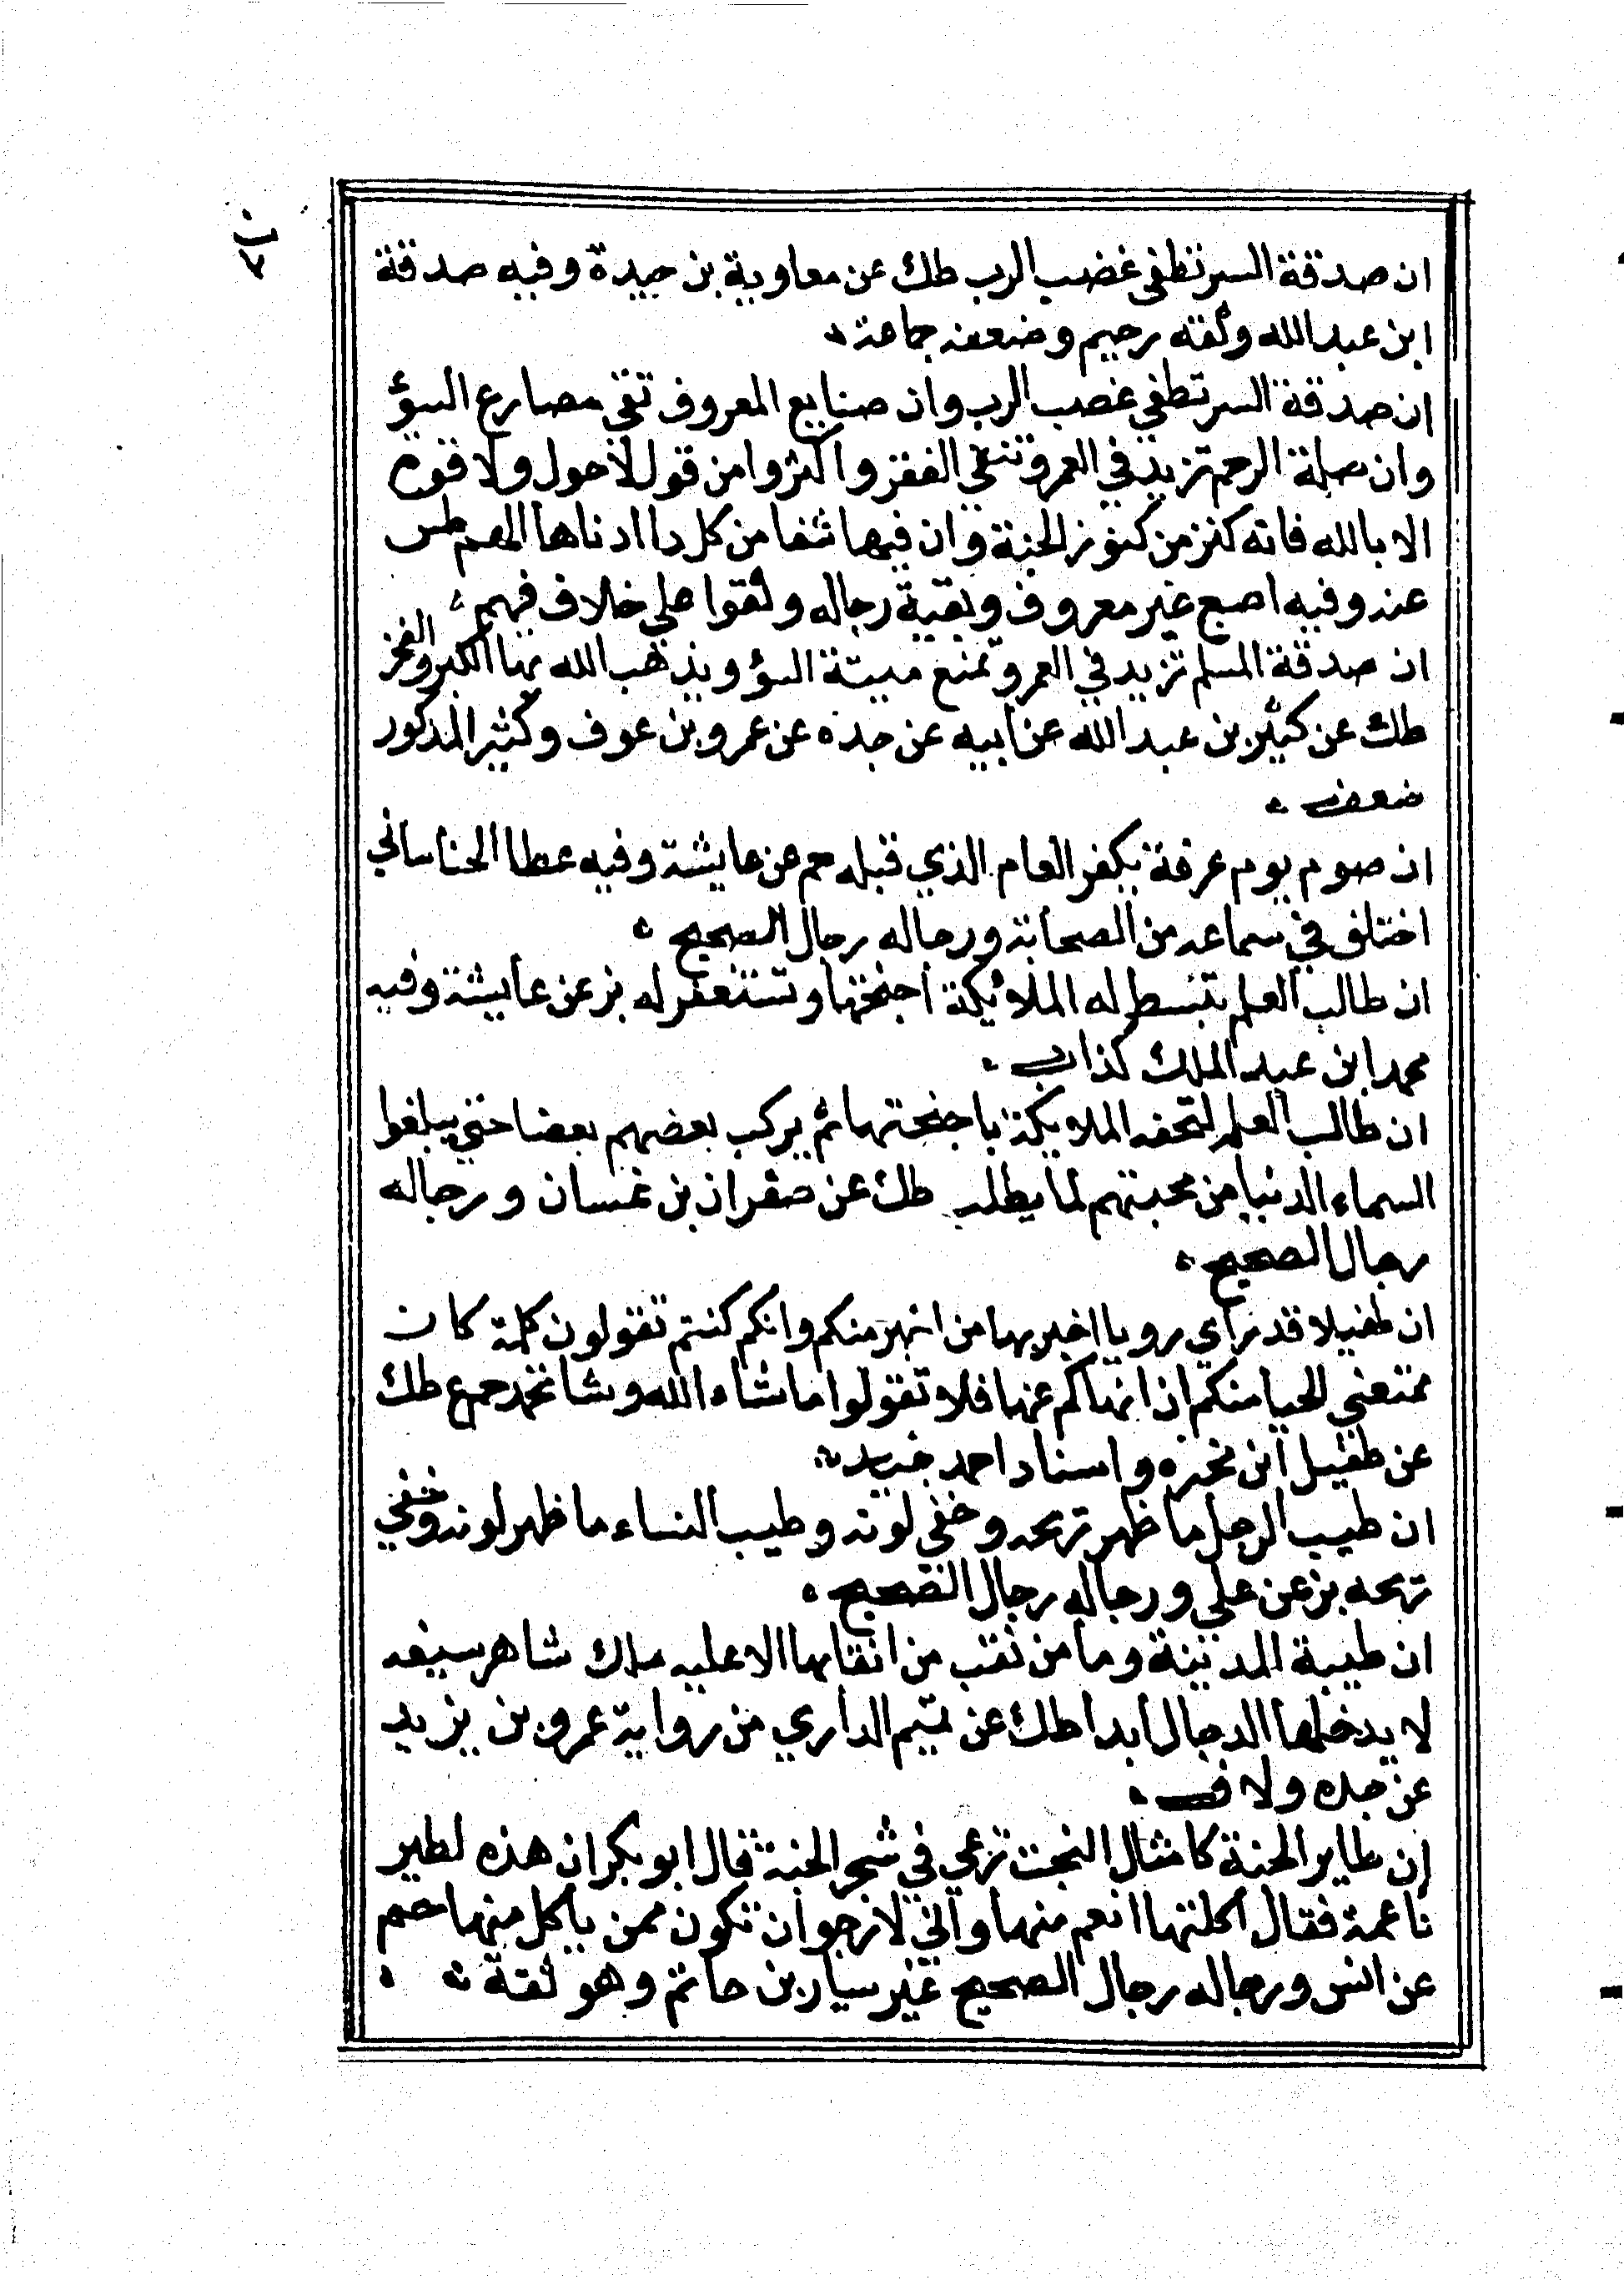 ان صدقة السر تطفي غضب الرب طك عن معاوية بن حيدة وفيه صدقة
ابن عبد الله وثقه رحيم وضعفه جماعة
ان صدقة السر تطفي غضب الرب وان صنايع المعروف تقي مصارع السوٴ
وان صلة الرحم تزيد في العمر وتنفي الفقر واكثروا من قول لا حول ولا قوة
الا بالله فانه كنز من كنوز الجنة وان فيها شفا من كل داا ادناها الهم طس
عنه وفيه اصبع غير معروف وبقية رجاله وثقوا علي خلاف فيهم
ان صدقة المسلم تزيد في العمر وتمنع ميتة السؤ ويذهب الله بها الكبر والفخر
طك عن كثير بن عبد الله عن ابيه عن جده عن عمرو بن عوف وكثير المذكور
ضعف
ان صوم يوم عرفة يكفر العام الذي قبله حم عن عايشة وفيه عطا
اختلف في سماعه من الصحابة ورجاله رجال الصحيح
ان طالب العلم تبسط له الملائكة اجنحتها وتستغفر له بز عن عايشة وفيه
محمد ابن عبد الملك كذاب
ان طالب العلم لتحفه الملايكة باجنحتها ثم يركب بعضهم بعضا حتي يبلغوا
السماء الدنيا من محبتهم لما يطلب طك عن صفران بن غسان ورجاله
رجال الصحيح
ان طفيلا قد راي رويا اخبر بها من منكم وانكم كنتم تقولون كلمة كان
يمنعني الحيا منكم ان انهاكم عنها فلا تقولوا ما شاء الله وشا حم ع طك
عن طفيل ابن واسناد احمد جيد
ان طيب الرجل ما ظهر ريحه وخفي لونه وطيب النساء ما ظهر لونه وخفي
ريحه بز عن علي ورجاله رجال الصحيح
ان طيبة المدينة وما من نقب من انقابها الا عليه ملك شاهر سيفه
لا يدخلها الدجال ابدا طك عن تميم الداري من رواية عمرو بن يزيد
عن جده ولا
ان طاير الجنة كامثال البخت ترعي في شجر الجنة قال ابو بكر ان هذه لطير
ناعمة فقال اكلتها انعم منها واني لارجوا ان تكون ممن ياكل منها حم
عن انس ورجاله رجال الصحيح غير سيار بن حاتم وهو ثقة